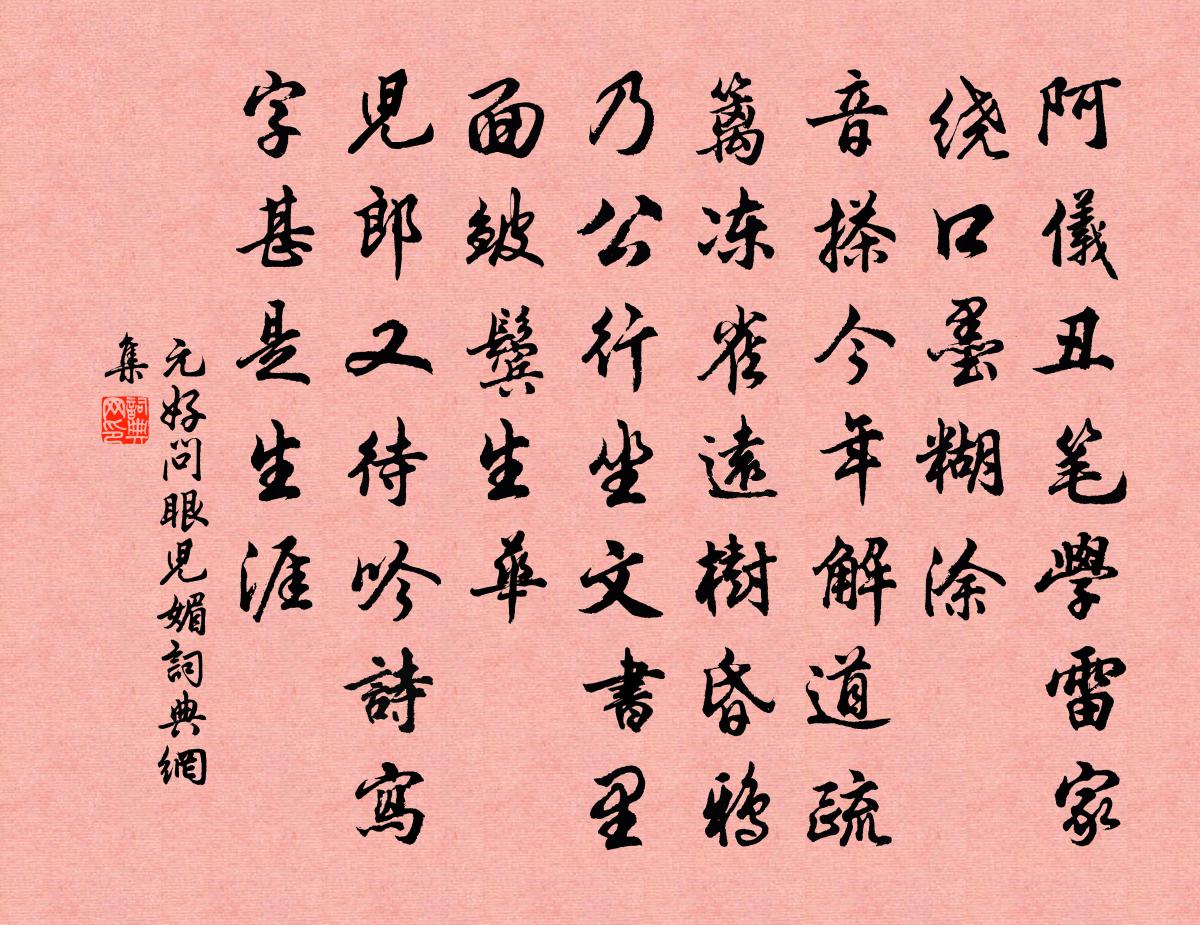 阿儀丑笔學雷家
绕口墨糊涂
音搽今年解道疏
篱冻雀遠樹昏鴉
乃公行坐文書里
面皴鬓生華
児郎又待吟詩寫
字甚是生涯
元好问眼児媚詞典網
集
詞典网印